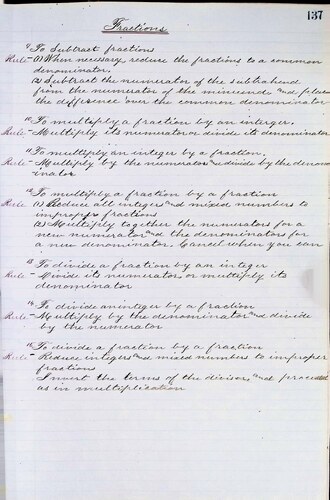 137
Fractions
9 To Subtract fractions
Rule - (1) When necessary reduce the fractions to a common
denominator.
(2) Subtract the numerator of the subtrahend
from the numerator of the minuend and place
the difference over the common denominator
10 To multiply a fraction by an interger,
Rule - Multiply its numerator or divide its denominator
11 To multiply an integer by a fraction,
Rule - Multiply by the numerator and divide by the denom
inator
12 To multiply a fraction by a fraction
Rule (1) Reduce all integers and mixed numbers to
improper fractions
(2) Multiply together the numerators for a
new numerator and the denominators for
a new denominator. Cancel when you can
13 To divide a fraction by an integer
Rule - Divide its numerator or multiply its
denominator
14 To divide an integer by a fraction
Rule - Multiply by the denominator and divide
by the numerator
15 To divide a fraction by a fraction
Rule - Reduce integers and mixed numbers to improper
fractions
Invert the terms of the divisor and proceed
as in multiplication